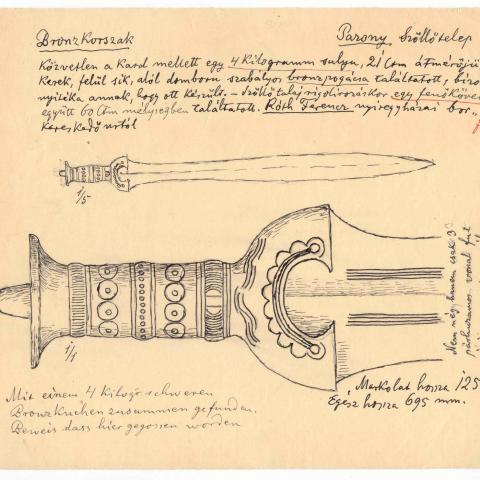 Bronzkorszak
Pazony, Szőllőtelep
Közvetlen a Kard mellett egy 4 Kilogramm sulyu, 21 ctm átmérőjü
Kerek, felül sik, alól domboru szabályos bronzpogácsa találtatott, bizo
nyitéka annak, hogy ott készült. – Szőllő talaj rigolirozáskor egy fenőkővel
együtt 60 ctm mélységben találtatott. Róth Ferencz nyiregyházai bor„
kereskedő urtól
1/5
1/1
Nem négy hanem csak 3
párhuzamos vonal fut
Markolat hossza 125
Egész hossza 695 mm.
Mit einem 4 Kilogr schweren
Bronzkuchen zusammen gefunden.
Beweis dass hier gegossen worden